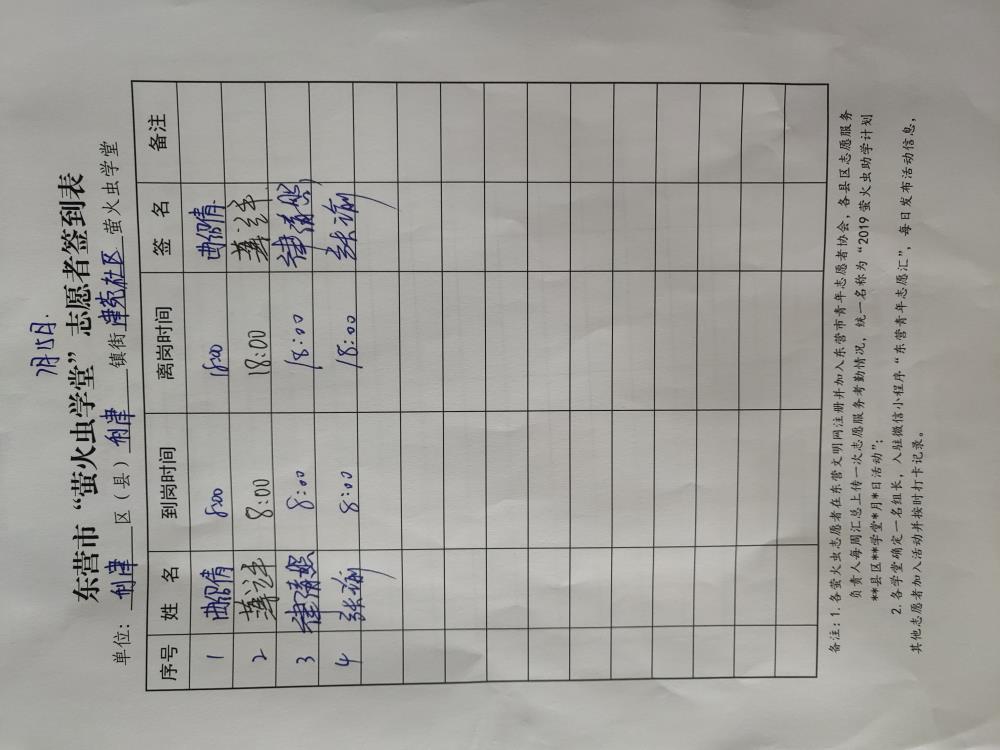 7月15日.
东营市“萤火虫学堂”志愿者签到表
单位: 利津 区（县）利津 镇街 津苑社区 萤火虫学堂
序号 姓 名 到岗时间 离岗时间 签 名 备注
1 倩 8:00 18:00 倩
2 8:00 18:00
3 8:00 18:00
4 张瑜 8:00 18:00 张瑜
备注: 1. 各萤火虫志愿者在东营文明网注册并加入东营市青年志愿者协会, 各县区志愿服务
负责人每周汇总上传一次志愿服务考勤情况, 统一名称为“2019 萤火虫助学计划
**县区**学堂*月*日活动”;
2. 各学堂确定一名组长, 入驻微信小程序“东营青年志愿汇”, 每日发布活动信息,
其他志愿者加入活动并按时打卡记录。